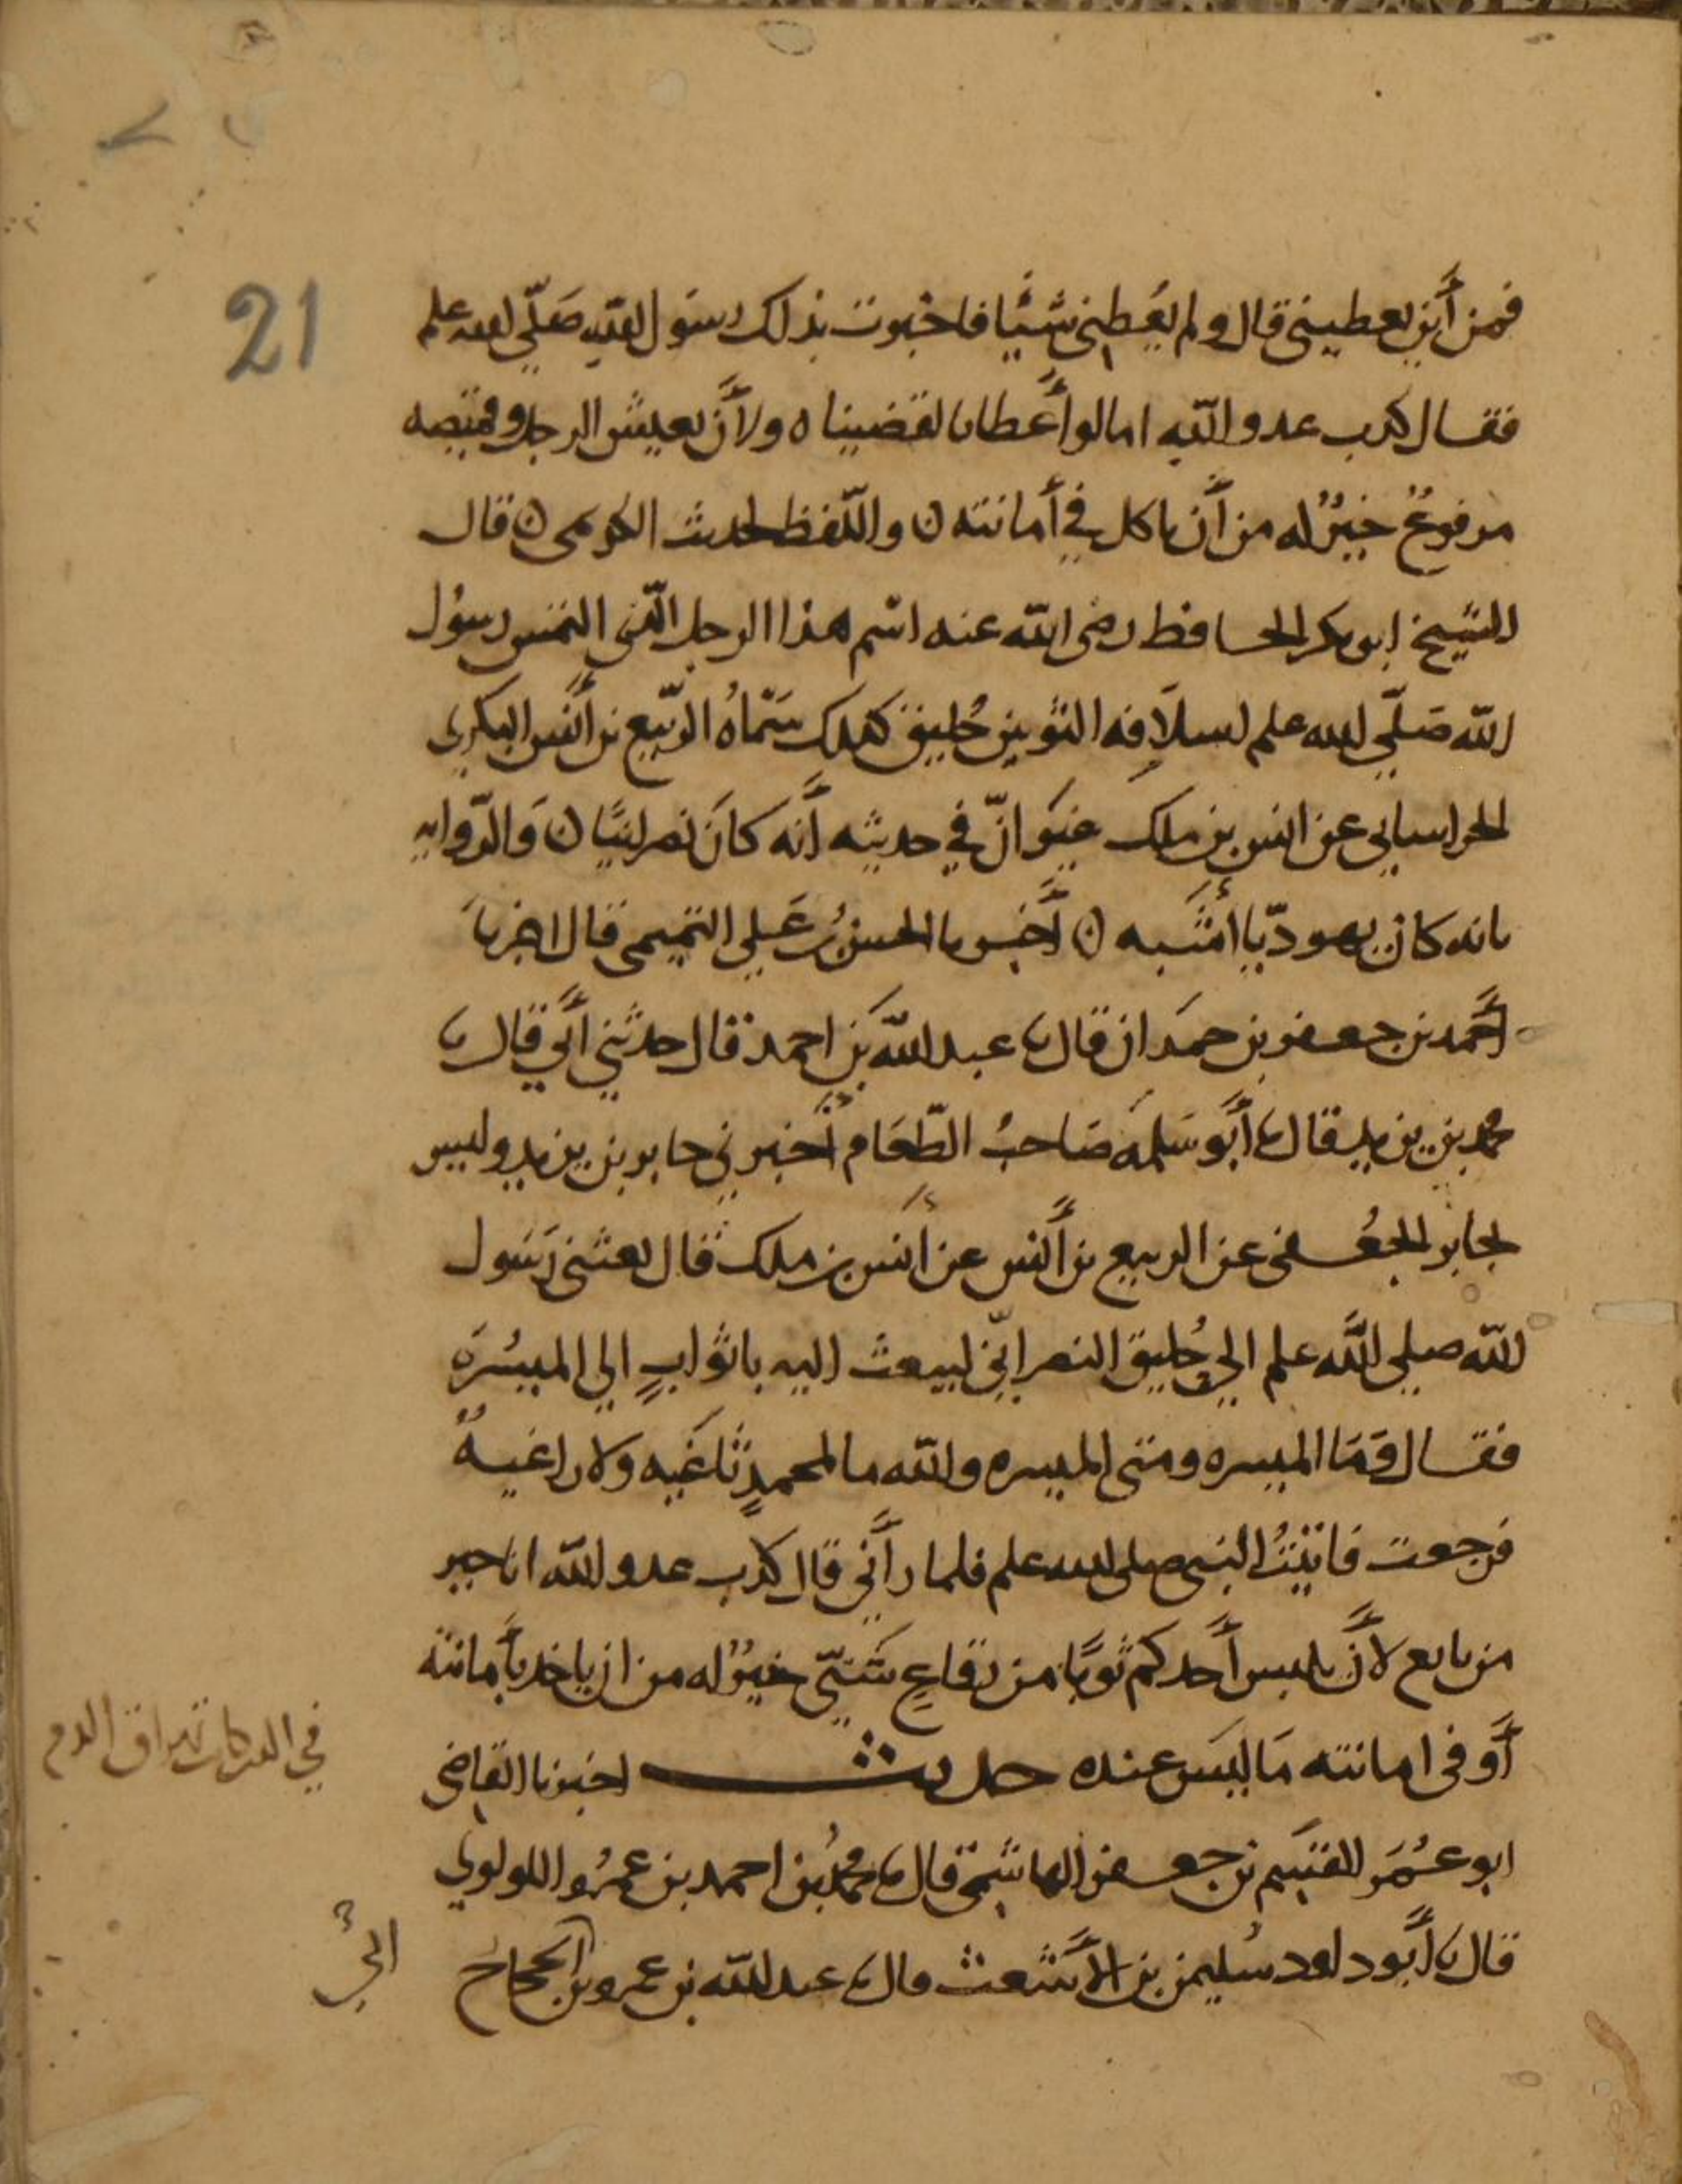 21
فمن أين يعطيني قال ولم يُعطِني شيًا فاخبرت بذلك رسَول الله صَلّى الله علم
فقال كذب عدو الله اما لو أعطانا لقضيناه ولأن يعيش الرجل وقميصه
مرفوعٌ خيرٌ له من أن ياكل في أمانته ن واللّفظ لحديث ن قال
الشيخ ابو بكر الحافظ رضى الله عنه اسْم هذا الرجل الّذي التمس رسوُل
الله صَلّى الله علم استلافه الثوبين حُليق كذلك سَمّاهُ الرّبيع بن أنَس البكري
الخراساني عن انس بن ملك غيرَ انّ في حديثه أنه كانَ نصرانيًا ن وَالرّوايه
بانه كان يهوديّا اشبه ن أخبرنا الحسَن بنُ عَلي التميمى قال اخبرنا
أحمد بن جعفر بن حمدَان قال نا عبد الله بَن احمد قال حدثني أبي قال نا
محمد بن يزيد قال نا أبو سَلمَه صَاحبُ الطّعَام أخبرني جابر بن يزيد وليس
لجابر الجُعفى عن الربيع بن أنَس عن انَس بن ملك قال بعثنى رَسَول
الله صلى الله علم الي حُليق النصرانيّ ليبعث اليه باثوابٍ الى الميسُرَه
فقال وَمَا الميسره ومتى الميسره والله ما لمحمدٍ ثاغيَه ولا راغيهٌ
فرجعت فاتيتُ النبى صلى الله علم فلما رأني قال كذب عدو الله انا خير
من بايع لأن يلبس أحدكم ثوبًا من رقاعٍ شَتيّ خيرٌ له من ان ياخذ بأمانته
أو فى امانته مَا ليسَ عنده حديث اخبرنا القاضى
ابو عُمَر القسَم بن جعفر الهاشمي قال نا محمدُ بن احمد بن عمرُو اللولوي
قال نا أبو داود سُليمن بن الأشعث قال نا عبد الله بن عمرو بن الحجاج
في تهراق الدم